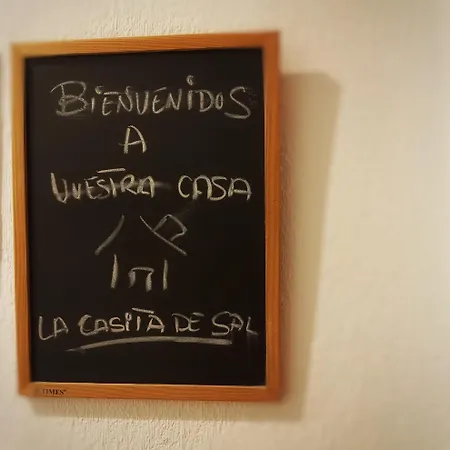 BIENVENIDOS
A
VUESTRA CASA
LA CASITA DE SAL